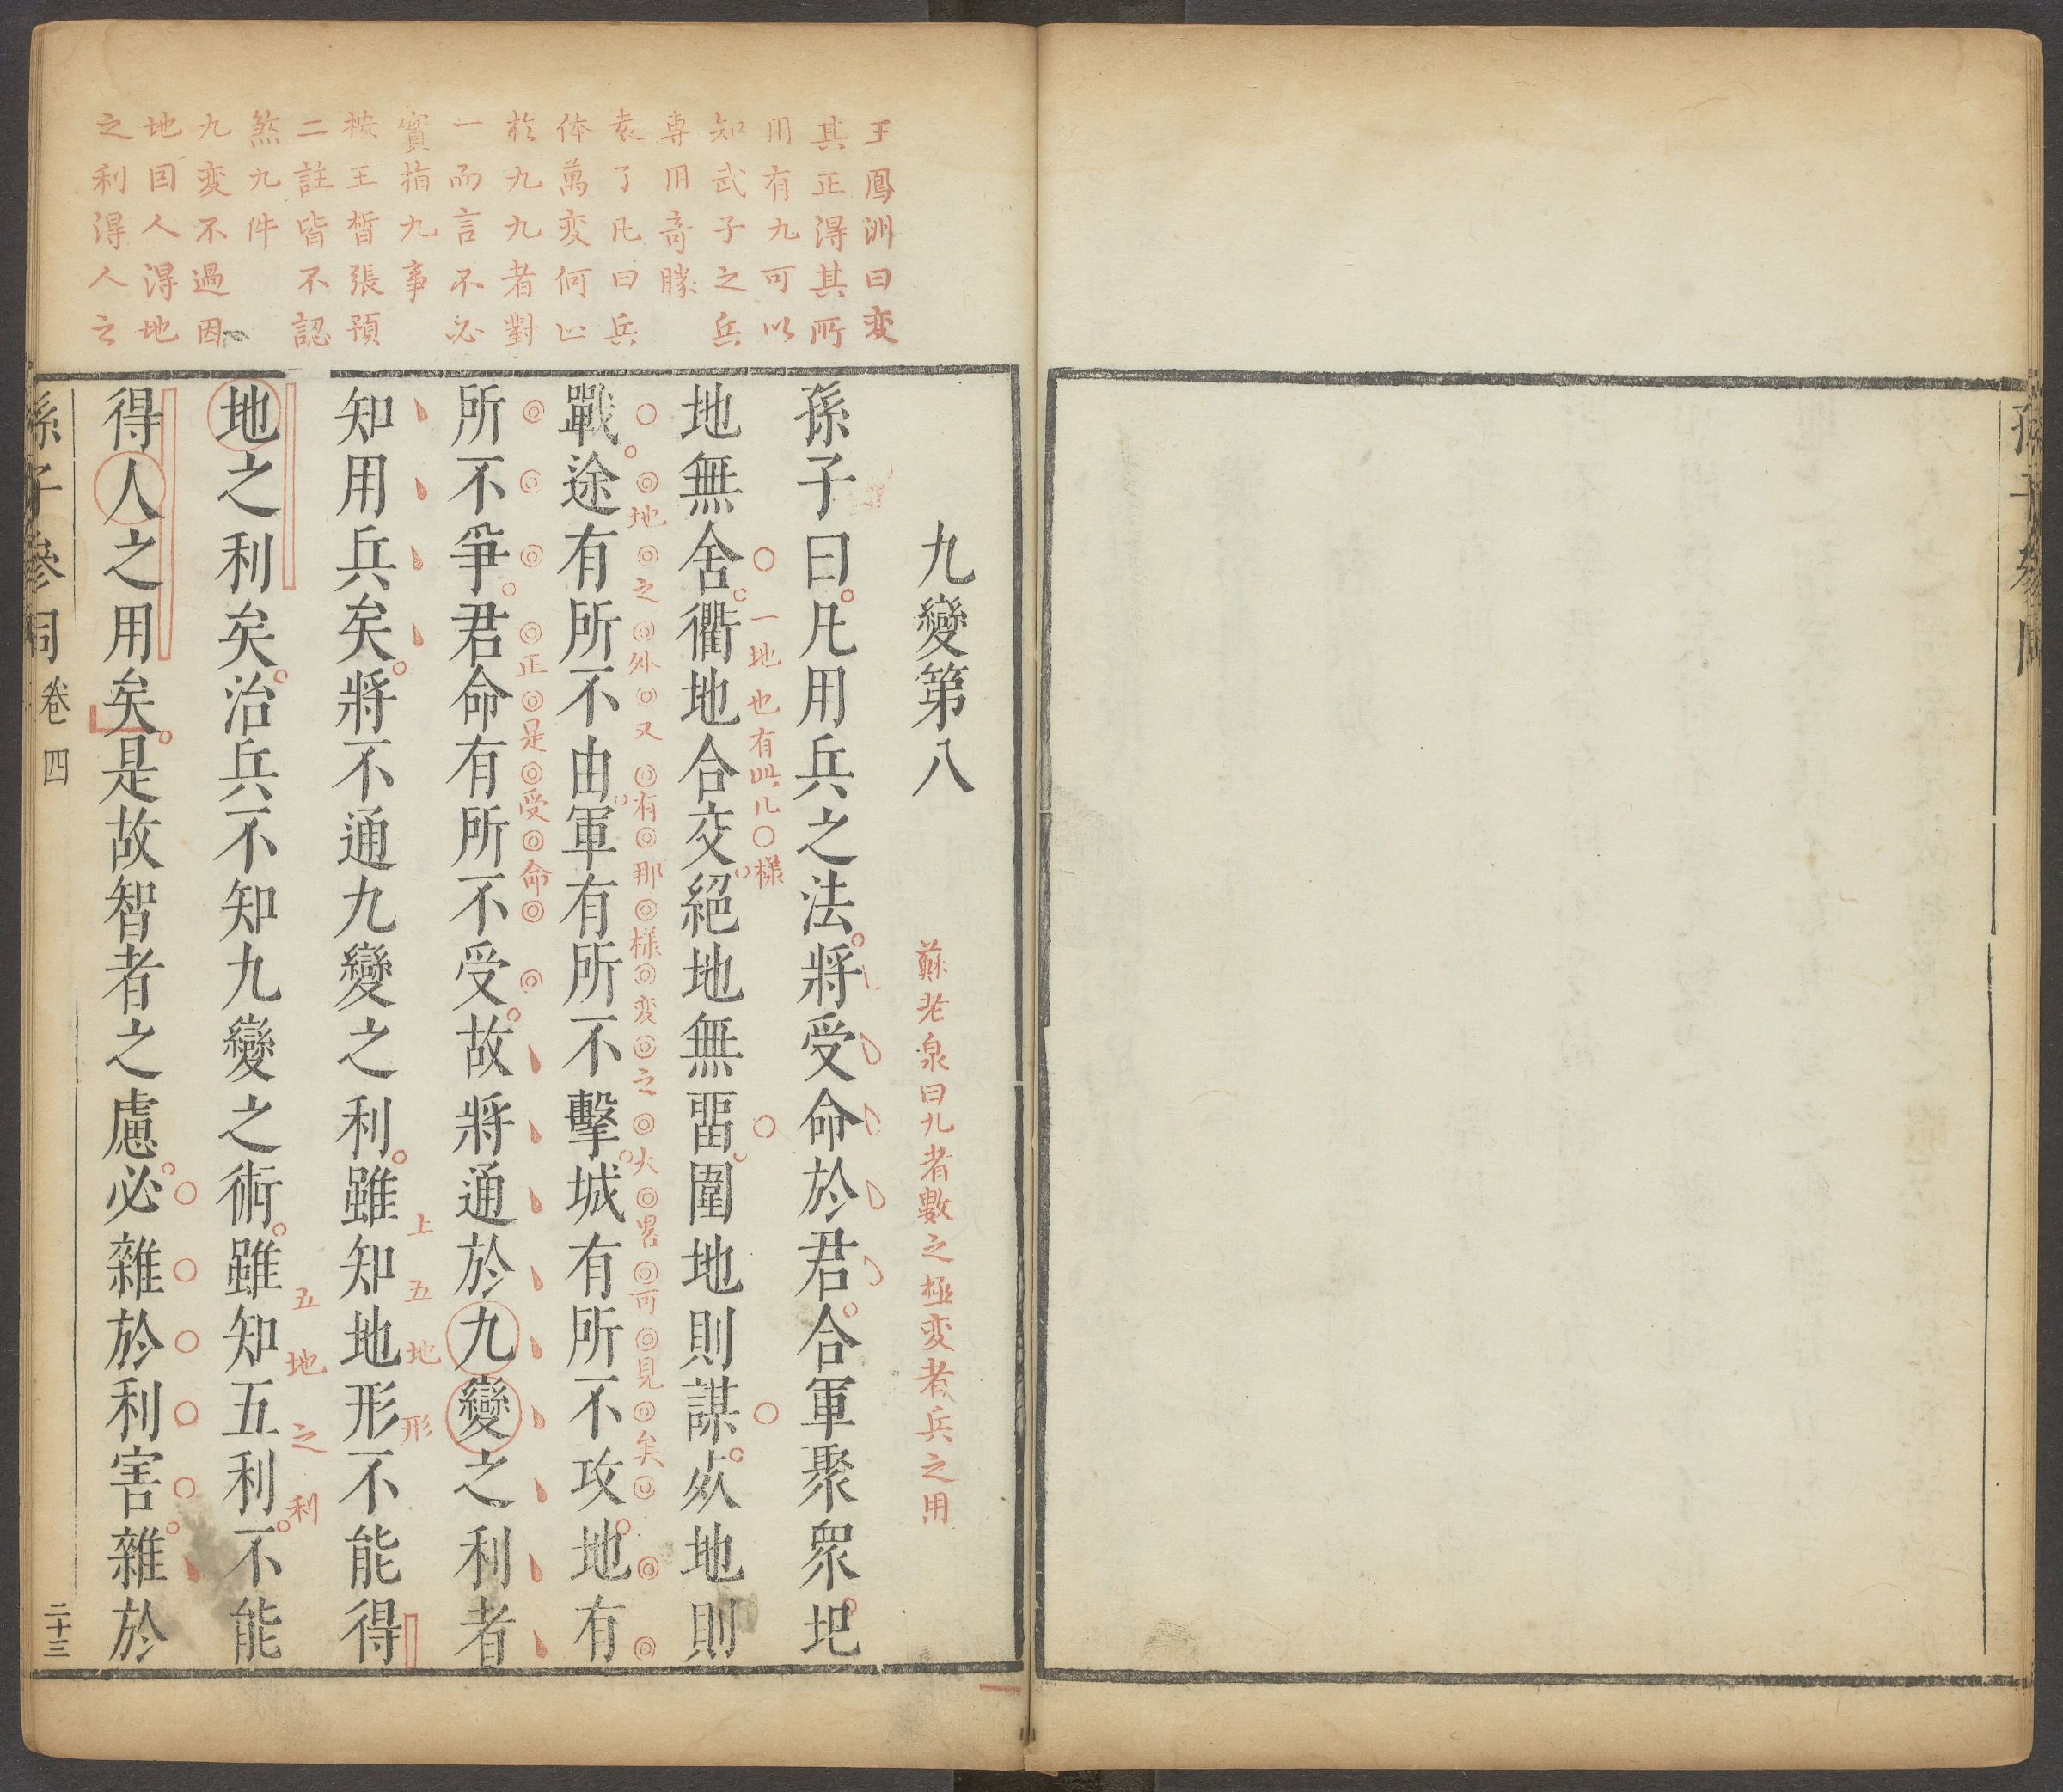 九變第八
蘇老泉曰九者數之極变者兵之用
孫子曰凡用兵之法將受命於君合軍聚眾圯
地無舍衢地合交絕地無畱圍地則謀死地則
一地也有此几樣
戰途有所不由軍有所不擊城有所不攻地有
地之外又有那樣变之大畧可見矣
所不爭君命有所不受故將通於九變之利者
正是受命
知用兵矣將不通九變之利雖知地形不能得
上五地形
地之利矣治兵不知九變之術雖知五利不能
五地之利
得人之用矣是故智者之慮必雜於利害雜於
王鳳洲曰变
其正得其所
用有九可以
知武子之兵
專用奇勝
袁了凡曰兵
体萬变何止
於九九者對
一而言不必
實指九事
按王晳張預
二註皆不認
煞九件
九変不過因
地因人得地
之利得人之
孫子參同
卷四
二十三